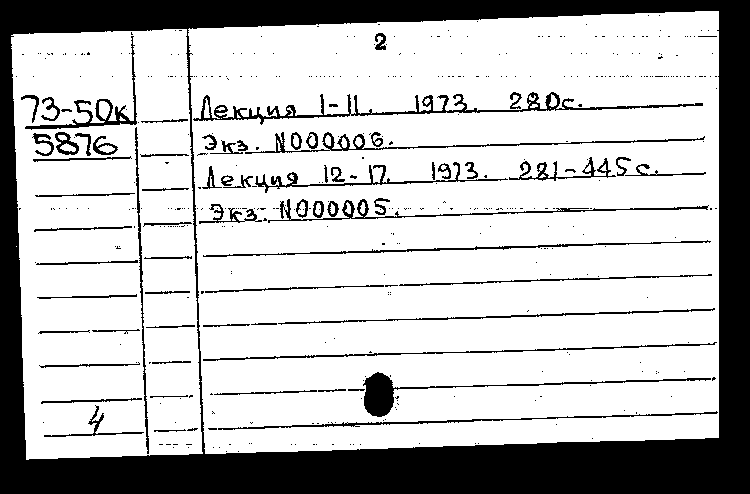 2
73-50к Лекция 1-11. 1973. 280с.
5876 Экз. N000006.
Лекция 12-17. 1973. 281-445с.
Экз. N000005.
4